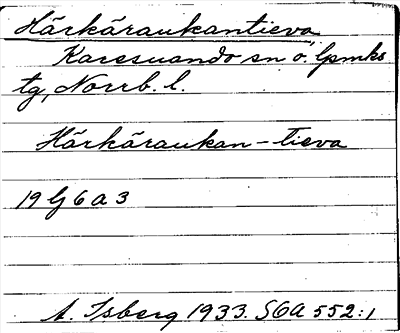 Härkäraukantieva
Karesuando sn o. lpmks
tg, Norrb. l.
Härkäraukan-tieva
19 lj 6 a 3
A. Isberg 1933. SOA 552:1